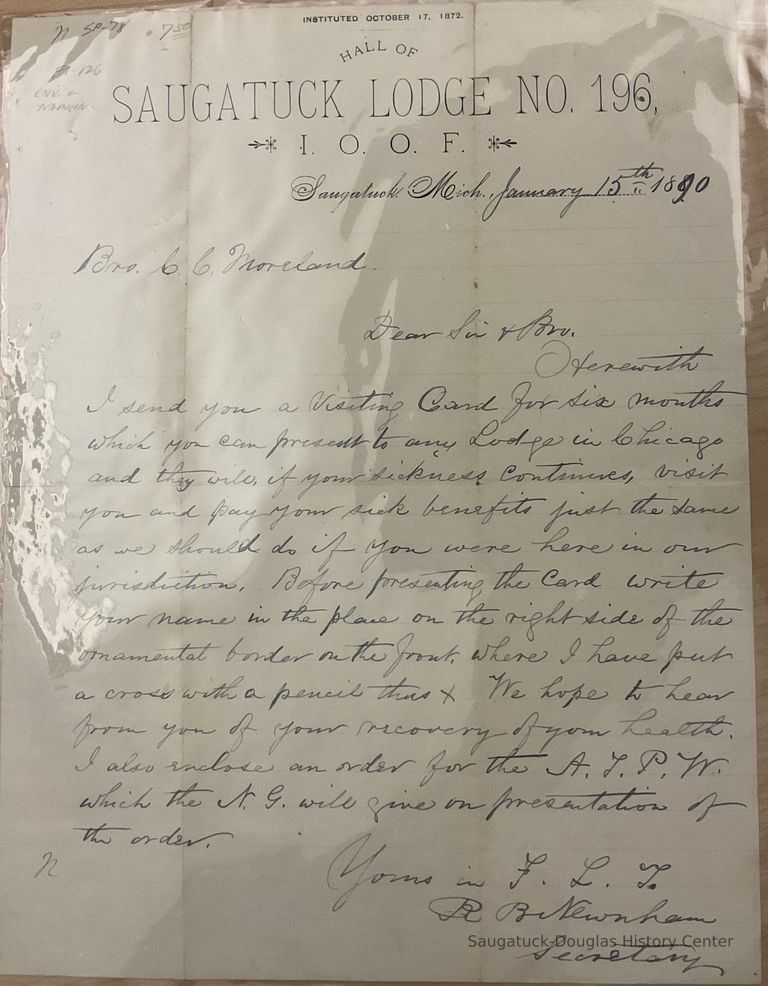 INSTITUTED OCTOBER 17, 1872.
n SP-78 . 7.50
E-126
ENV. &
HALL OF
SAUGATUCK LODGE NO. 196,
I. O. O. F.
Saugatuck, Mich., January 15th 1890
Bro. C. C. Moreland.
Dear Sir & Bro.
Herewith
I send you a Visiting Card for six months
which you can present to any Lodge in Chicago
and they will, if your sickness continues, visit
you and pay your sick benefits just the same
as we should do if you were here in our
jurisdiction. Before presenting the Card write
your name in the place on the right side of the
ornamental border on the front, where I have put
a cross with a pencil thus X We hope to hear
from you of your recovery of your health.
I also enclose an order for the A. T. P. W.
which the N. G. will give on presentation of
the order.
n
Yours in F. L. T.
R B Newnham
Secretary
Saugatuck-Douglas History Center